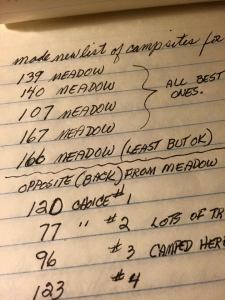 made new list of campsites for
139 MEADOW
140 MEADOW
107 MEADOW
167 MEADOW
ALL BEST
ONES.
166 MEADOW (LEAST BUT OK)
OPPOSITE (BACK) FROM MEADOW
120 CHOICE #1
77 " #2 LOTS OF TR
96 #3 CAMPED HERE
123 #4